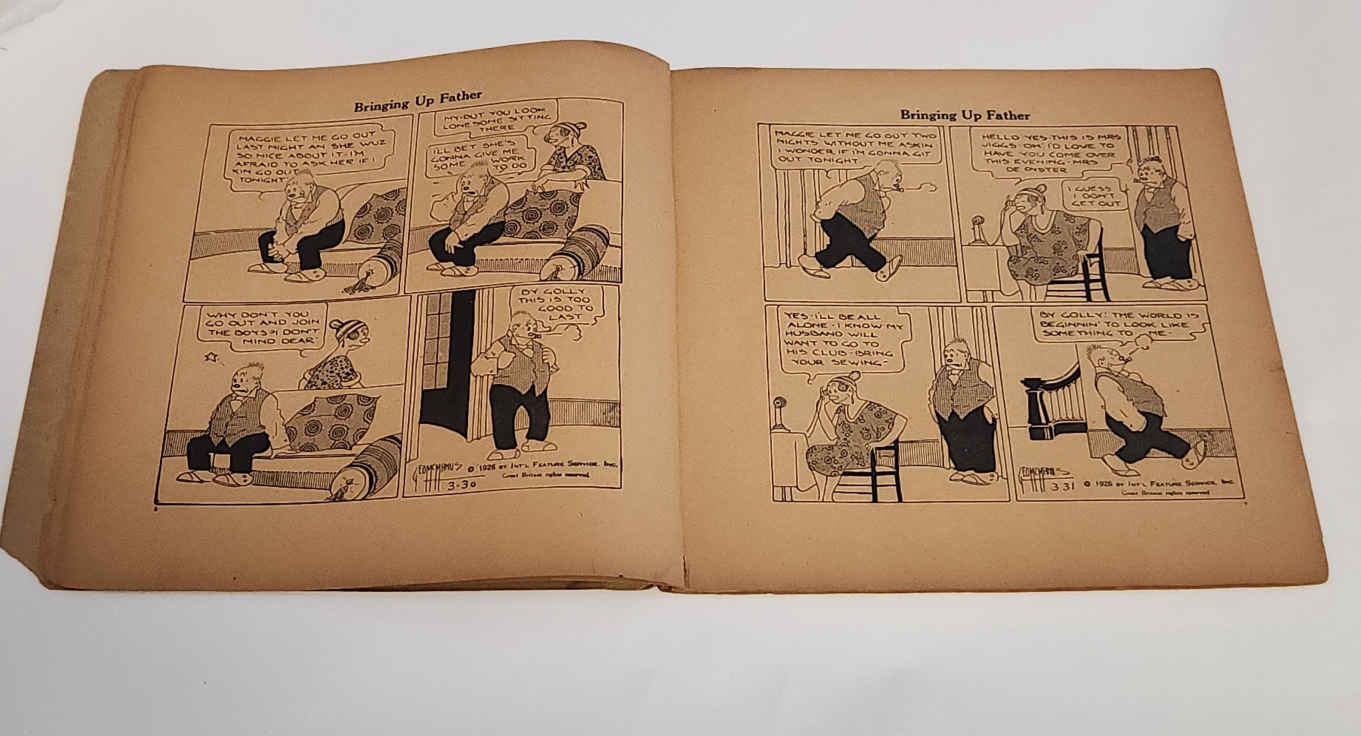 Bringing Up Father
MAGGIE LET ME GO OUT
LAST NIGHT AN SHE WUZ
SO NICE ABOUT IT-I'M
AFRAID TO ASK HER IF I
KIN GO OUT
TONIGHT
MY-BUT YOU LOOK
LONESOME SITTING
THERE
I'LL BET SHE'S
GONNA GIVE ME
SOME WORK
TO DO
WHY DON'T YOU
GO OUT AND JOIN
THE BOYS? I DON'T
MIND DEAR
BY GOLLY
THIS IS TOO
GOOD TO
LAST
© 1926 BY INT'L FEATURE SERVICE, INC.
Great Britain rights reserved
3-30
Bringing Up Father
MAGGIE LET ME GO OUT TWO
NIGHTS WITHOUT ME ASKIN
I WONDER IF I'M GONNA GIT
OUT TONIGHT
HELLO-YES-THIS IS MRS
JIGGS-OH I'D LOVE TO
HAVE YOU COME OVER
THIS EVENING-MRS
DE OYSTER
I GUESS
I DON'T
GET OUT
YES-I'LL BE ALL
ALONE-I KNOW MY
HUSBAND WILL
WANT TO GO TO
HIS CLUB-BRING
YOUR SEWING-
BY GOLLY! THE WORLD IS
BEGINNIN' TO LOOK LIKE
SOMETHING TO ME-
3-31
© 1926 BY INT'L FEATURE SERVICE, INC.
Great Britain rights reserved